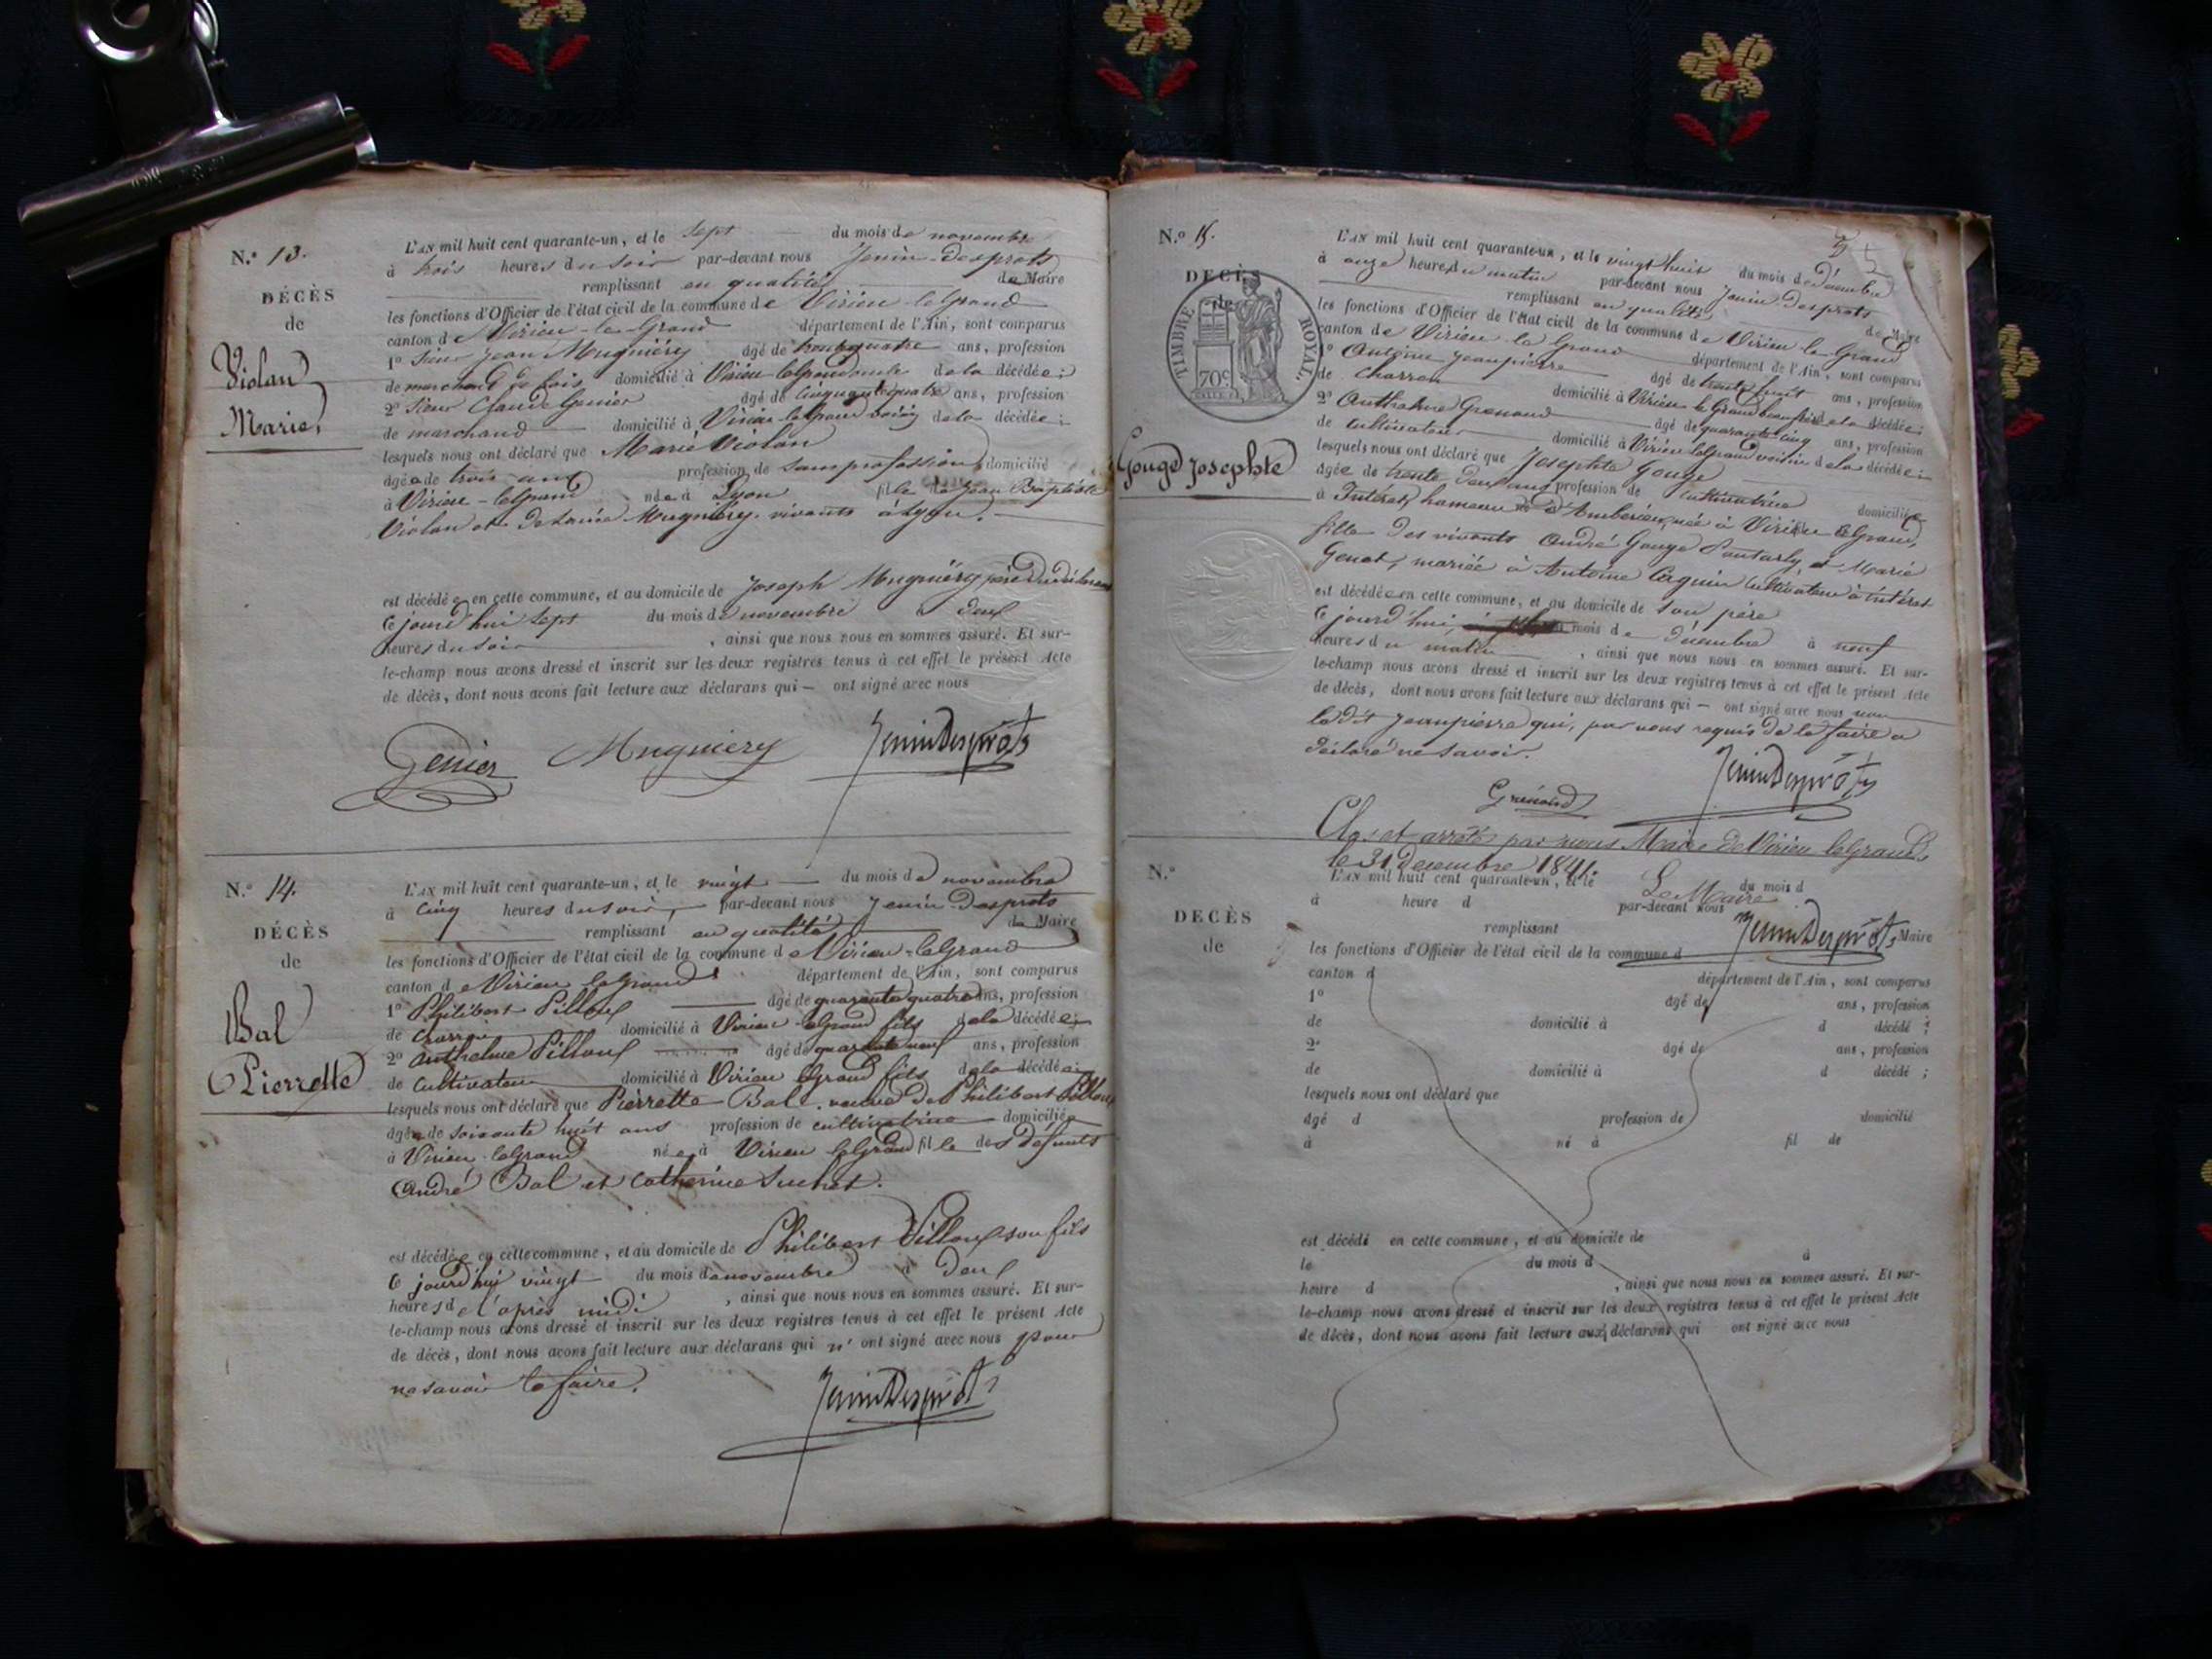 N.º 13.
DÉCÈS
de
Violan
Marie,
L'AN mil huit cent quarante-un, et le sept du mois de novembre
à trois heures du soir par-devant nous Jenin-Desprots
remplissant en qualité de Maire
les fonctions d'Officier de l'état civil de la commune de Virieu-le-Grand
canton de Virieu-le-Grand département de l'Ain, sont comparus
1º Sieur Jean Mugniéry âgé de trente quatre ans, profession
de marchand de bois domicilié à Virieu-le-Grand oncle de la décédée;
2º Sieur Claude Genier âgé de cinquante quatre ans, profession
de marchand domicilié à Virieu-le-Grand voisin de la décédée;
lesquels nous ont déclaré que Marie Violan
âgée de trois ans profession de sans profession domicilié
à Virieu-le-Grand née à Lyon fille de Jean Baptiste
Violan et de Mugniéry vivants à Lyon.
est décédée en cette commune, et au domicile de Joseph Mugniéry père du déclarant
le jourd'hui sept du mois de novembre à deux
heures du soir, ainsi que nous nous en sommes assuré. Et sur-
le-champ nous avons dressé et inscrit sur les deux registres tenus à cet effet le présent Acte
de décès, dont nous avons fait lecture aux déclarans qui — ont signé avec nous
Genier Mugniery JeninDesprots
N.º 14.
DÉCÈS
de
Bal
Pierrette
L'AN mil huit cent quarante-un, et le vingt du mois de novembre
à cinq heures du soir, par-devant nous Jenin-Desprots
remplissant en qualité de Maire
les fonctions d'Officier de l'état civil de la commune de Virieu-le-Grand
canton de Virieu le Grand département de l'Ain, sont comparus
1º Philibert Pilloux âgé de quarante quatre ans, profession
de charron domicilié à Virieu-le-Grand fils de la décédée;
2º Anthelme Pilloux âgé de quarante neuf ans, profession
de cultivateur domicilié à Virieu le Grand fils de la décédée;
lesquels nous ont déclaré que Pierrette Bal, veuve de Philibert Pilloux
âgée de soixante huit ans profession de cultivatrice domiciliée
à Virieu-le-Grand née à Virieu le Grand fille des défunts
André Bal et Catherine Suchet.
est décédée en cette commune, et au domicile de Philibert Pilloux son fils
le jourd'hui vingt du mois de novembre à deux
heures de l'après midi, ainsi que nous nous en sommes assuré. Et sur-
le-champ nous avons dressé et inscrit sur les deux registres tenus à cet effet le présent Acte
de décès, dont nous avons fait lecture aux déclarans qui n'ont signé avec nous pour
ne savoir le faire.
JeninDesprots
N.º 15.
5
DECÈS
de
TIMBRE ROYAL.
70c
Gouge Josephte
L'AN mil huit cent quarante-un, et le vingt huit du mois de décembre
à onze heures du matin par-devant nous Jenin Desprots
remplissant en qualité de Maire
les fonctions d'Officier de l'état civil de la commune de Virieu le Grand
canton de Virieu le Grand département de l'Ain, sont comparus
1º Antoine Jeanpierre âgé de trente huit ans, profession
de charron domicilié à Virieu le Grand beau frère de la décédée;
2º Anthelme Grenaud âgé de quarante cinq ans, profession
de cultivateur domicilié à Virieu le Grand voisin de la décédée;
lesquels nous ont déclaré que Josephte Gouge
âgée de trente deux ans profession de cultivatrice domiciliée
à Intérat, hameau d'Amberieu, née à Virieu le Grand,
fille des vivants André Gouge et Marie
Genot, mariée à Antoine cultivateur à Intérat
est décédée en cette commune, et au domicile de son père
le jourd'hui, mois de décembre à neuf
heures du matin, ainsi que nous nous en sommes assuré. Et sur-
le-champ nous avons dressé et inscrit sur les deux registres tenus à cet effet le présent Acte
de décès, dont nous avons fait lecture aux déclarans qui — ont signé avec nous non
le dit Jeanpierre qui, par nous requis de le faire a
déclaré ne savoir.
Grenaud JeninDesprots
Clos et arrêté par nous Maire de Virieu le Grand,
le 31 Decembre 1841.
Le Maire
JeninDesprots
N.º
DECÈS
de
L'AN mil huit cent quarante-un, et le du mois d
à heure d par-devant nous
remplissant Maire
les fonctions d'Officier de l'état civil de la commune d
canton d département de l'Ain, sont comparus
1º âgé de ans, profession
de domicilié à d décédé ;
2º âgé de ans, profession
de domicilié à d décédé ;
lesquels nous ont déclaré que
âgé d profession de domicilié
à né à fil de
est décédé en cette commune, et au domicile de
le du mois d à
heure d , ainsi que nous nous en sommes assuré. Et sur-
le-champ nous avons dressé et inscrit sur les deux registres tenus à cet effet le présent Acte
de décès, dont nous avons fait lecture aux déclarans qui ont signé avec nous